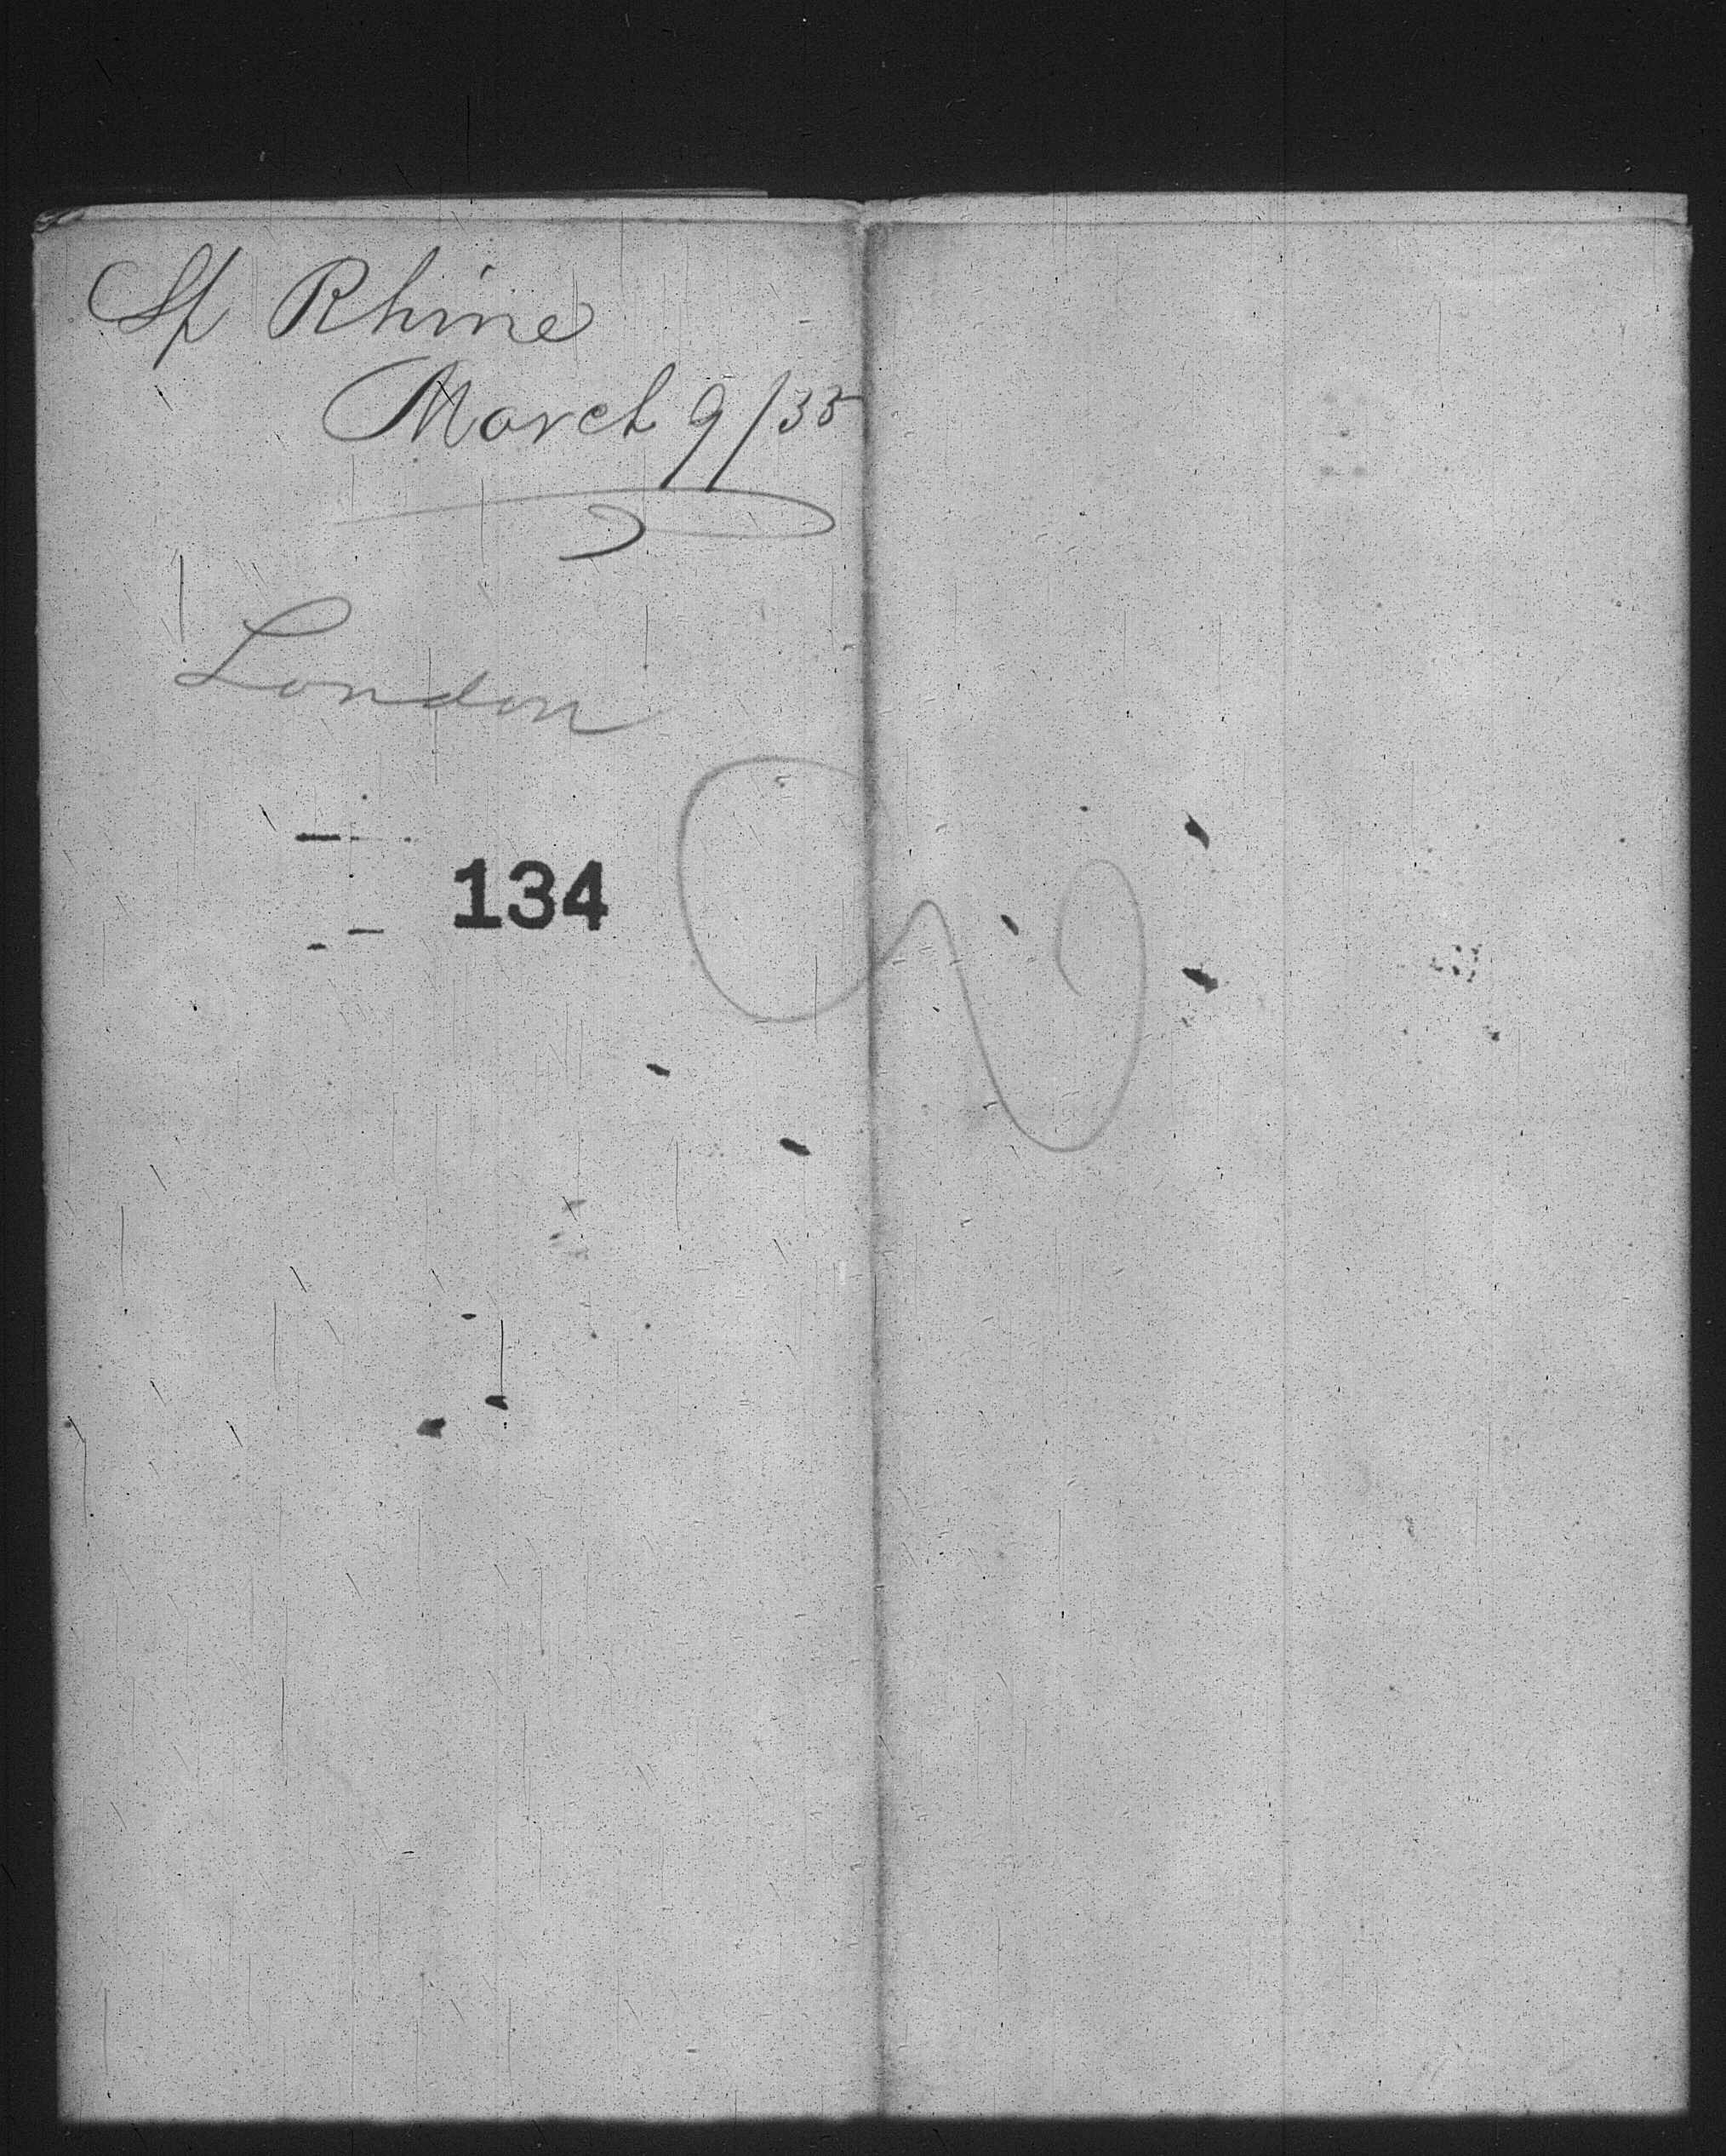 Sp Rhine
March 9/35
London
134